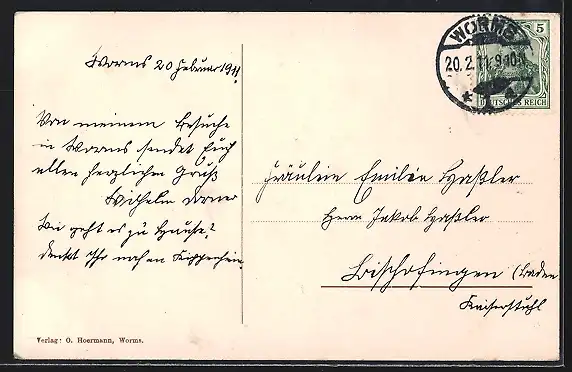 Worms 20 Februar 1911
Von meinem Besuche
in Worms sendet Euch
allen herzlichen Gruß
Wilhelm
Wie geht es zu Hause?
denkt Ihr noch an
Verlag: O. Hoermann, Worms.
WORMS
20.2.11.9-10N
5
DEUTSCHES REICH
Fräulein Emilie Haßler
Herrn Jakob Haßler
Bischofingen (Baden
Kaiserstuhl